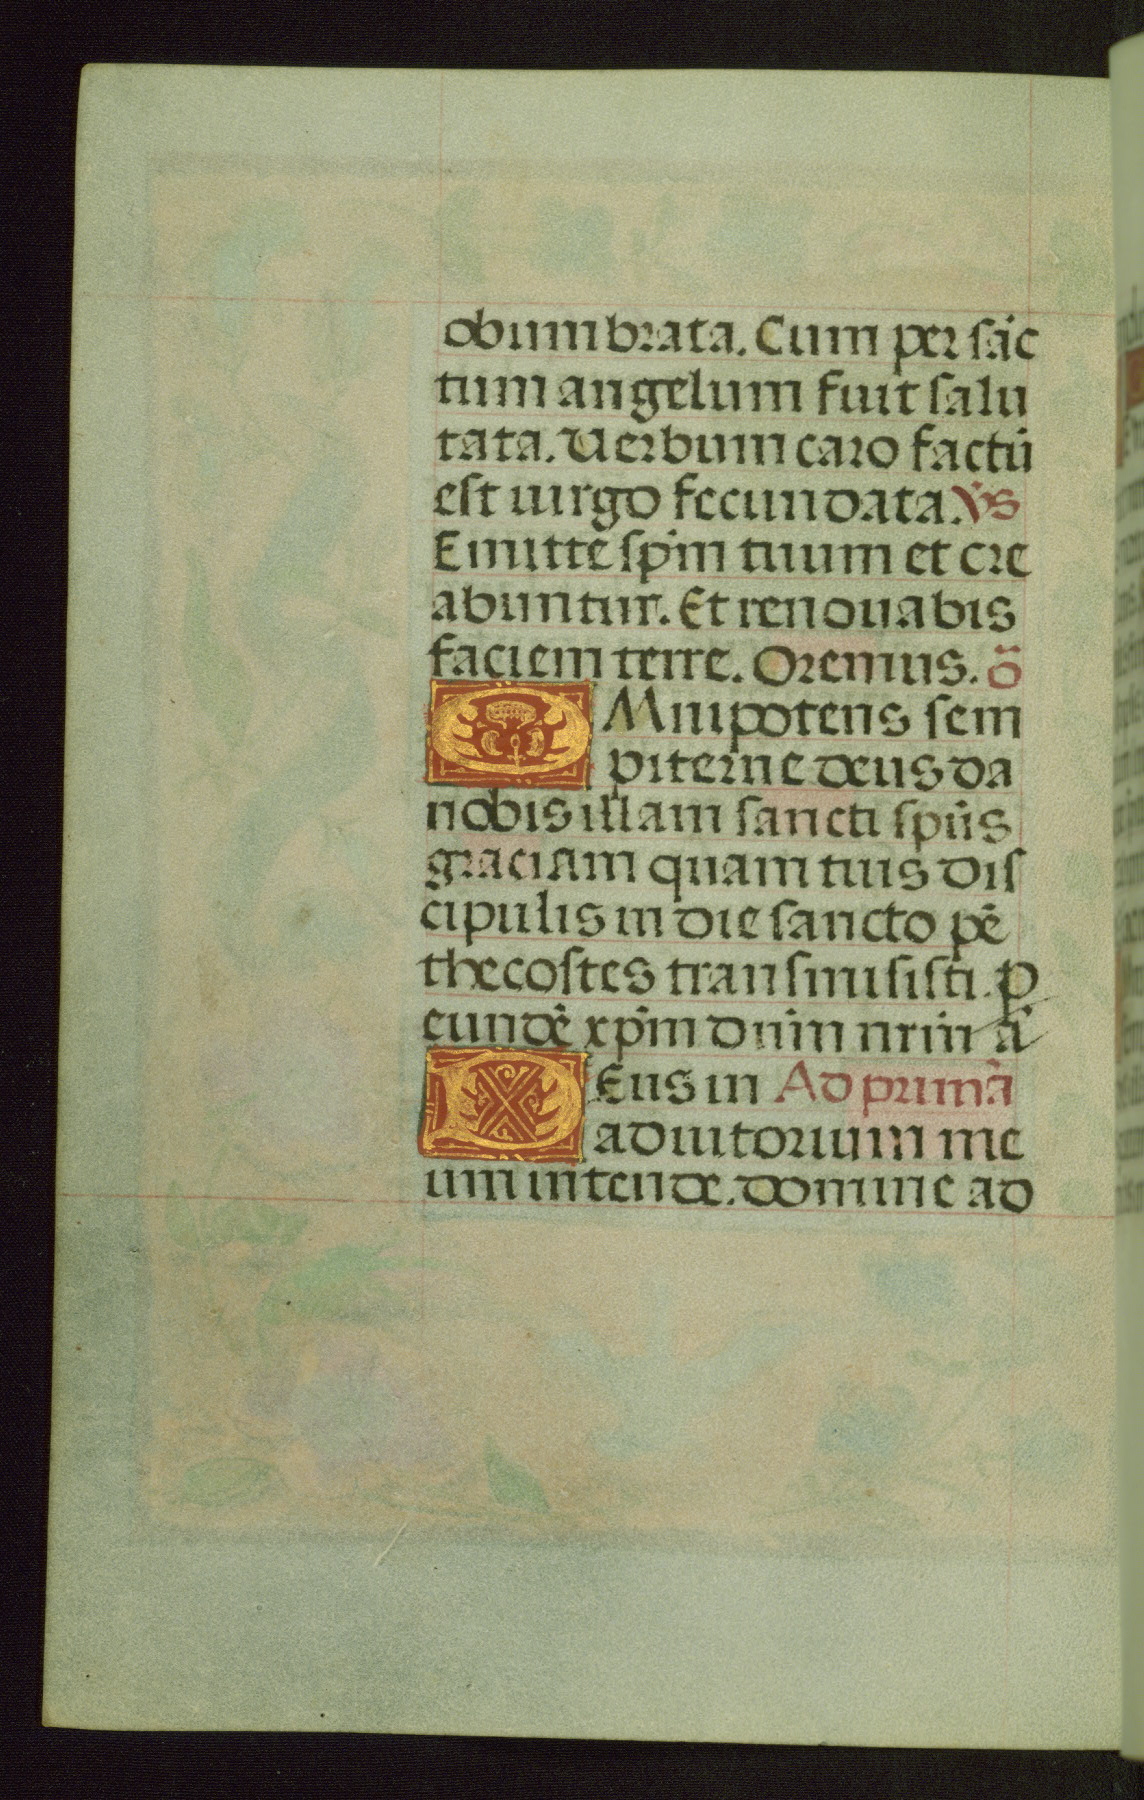 obumbrata. Cum per sāc
tum angelum fuit salu
tata. Uerbum caro factū
est uirgo fecundata. V̄s
Emitte sp̄m tuum et cre
abuntur. Et renouabis
faciem terre. Oremus. ō
OMnipotens sem
piterne deus da
nobis illam sancti sp̄us
graciam quam tuis dis
cipulis in die sancto pē
thecostes transmisisti. P
eundē xp̄m dn̄m nr̄m ā
DEus in Ad primā
adiutorium me
um intende. domine ad